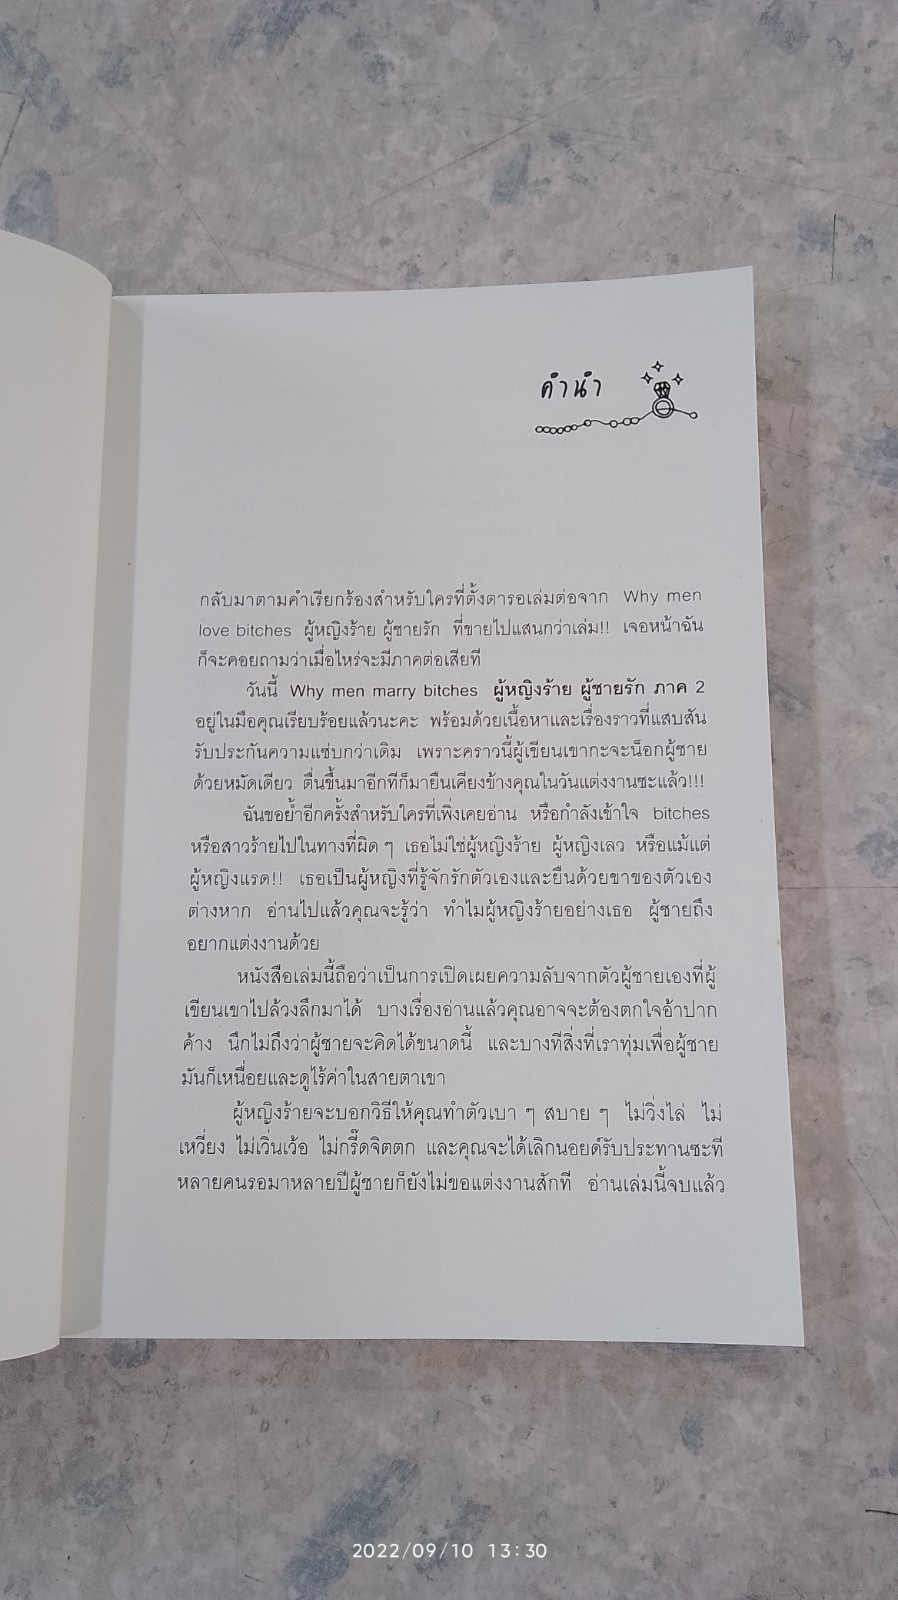 คำนำ
กลับมาตามคำเรียกร้องสำหรับใครที่ตั้งตารอเล่มต่อจาก Why men
love bitches ผู้หญิงร้าย ผู้ชายรัก ที่ขายไปแสนกว่าเล่ม!! เจอหน้าฉัน
ก็จะคอยถามว่าเมื่อไหร่จะมีภาคต่อเสียที
วันนี้ Why men marry bitches ผู้หญิงร้าย ผู้ชายรัก ภาค 2
อยู่ในมือคุณเรียบร้อยแล้วนะคะ พร้อมด้วยเนื้อหาและเรื่องราวที่แสบสัน
รับประกันความแซ่บกว่าเดิม เพราะคราวนี้ผู้เขียนเขากะจะน็อกผู้ชาย
ด้วยหมัดเดียว ตื่นขึ้นมาอีกทีก็มายืนเคียงข้างคุณในวันแต่งงานซะแล้ว!!!
ฉันขอย้ำอีกครั้งสำหรับใครที่เพิ่งเคยอ่าน หรือกำลังเข้าใจ bitches
หรือสาวร้ายไปในทางที่ผิด ๆ เธอไม่ใช่ผู้หญิงร้าย ผู้หญิงเลว หรือแม้แต่
ผู้หญิงแรด!! เธอเป็นผู้หญิงที่รู้จักรักตัวเองและยืนด้วยขาของตัวเอง
ต่างหาก อ่านไปแล้วคุณจะรู้ว่า ทำไมผู้หญิงร้ายอย่างเธอ ผู้ชายถึง
อยากแต่งงานด้วย
หนังสือเล่มนี้ถือว่าเป็นการเปิดเผยความลับจากตัวผู้ชายเองที่ผู้
เขียนเขาไปล้วงลึกมาได้ บางเรื่องอ่านแล้วคุณอาจจะต้องตกใจอ้าปาก
ค้าง นึกไม่ถึงว่าผู้ชายจะคิดได้ขนาดนี้ และบางทีสิ่งที่เราทุ่มเพื่อผู้ชาย
มันก็เหนื่อยและดูไร้ค่าในสายตาเขา
ผู้หญิงร้ายจะบอกวิธีให้คุณทำตัวเบา ๆ สบาย ๆ ไม่วิ่งไล่ ไม่
เหวี่ยง ไม่เวิ่นเว้อ ไม่กรี๊ดจิตตก และคุณจะได้เลิกนอยด์รับประทานซะที
หลายคนรอมาหลายปีผู้ชายก็ยังไม่ขอแต่งงานสักที อ่านเล่มนี้จบแล้ว
2022/09/10 13:30